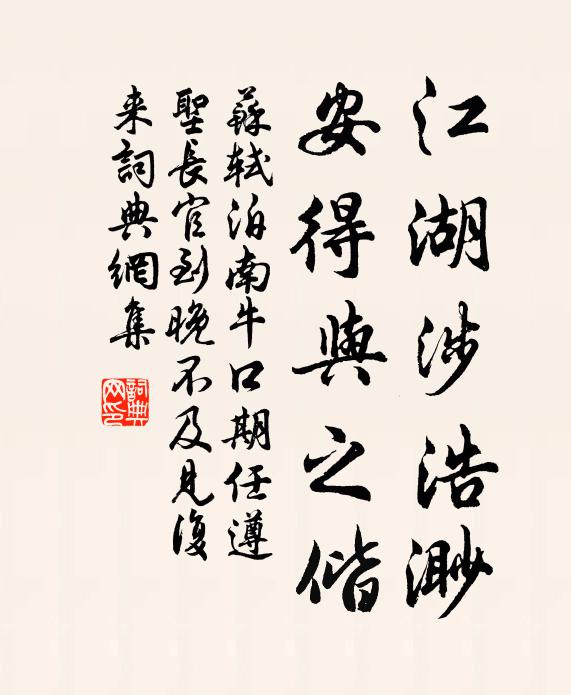 江湖涉浩渺
安得與之偕
蘇軾泊南牛口期任遵
聖長官到晚不及見復
来詞典網集
詞典网印